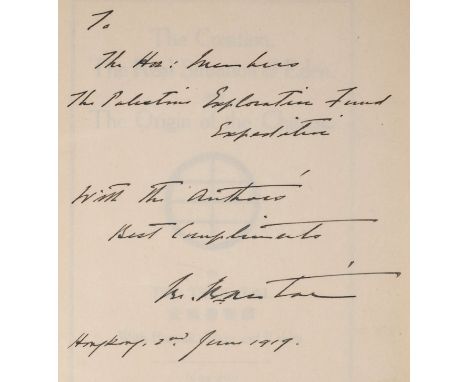 To
The Hon: Members
The Palestine Exploration Fund
Expedition
With the Authors'
Best Compliments
Hongkong, 2nd June 1919.
The Creation
The Origin of the Chinese